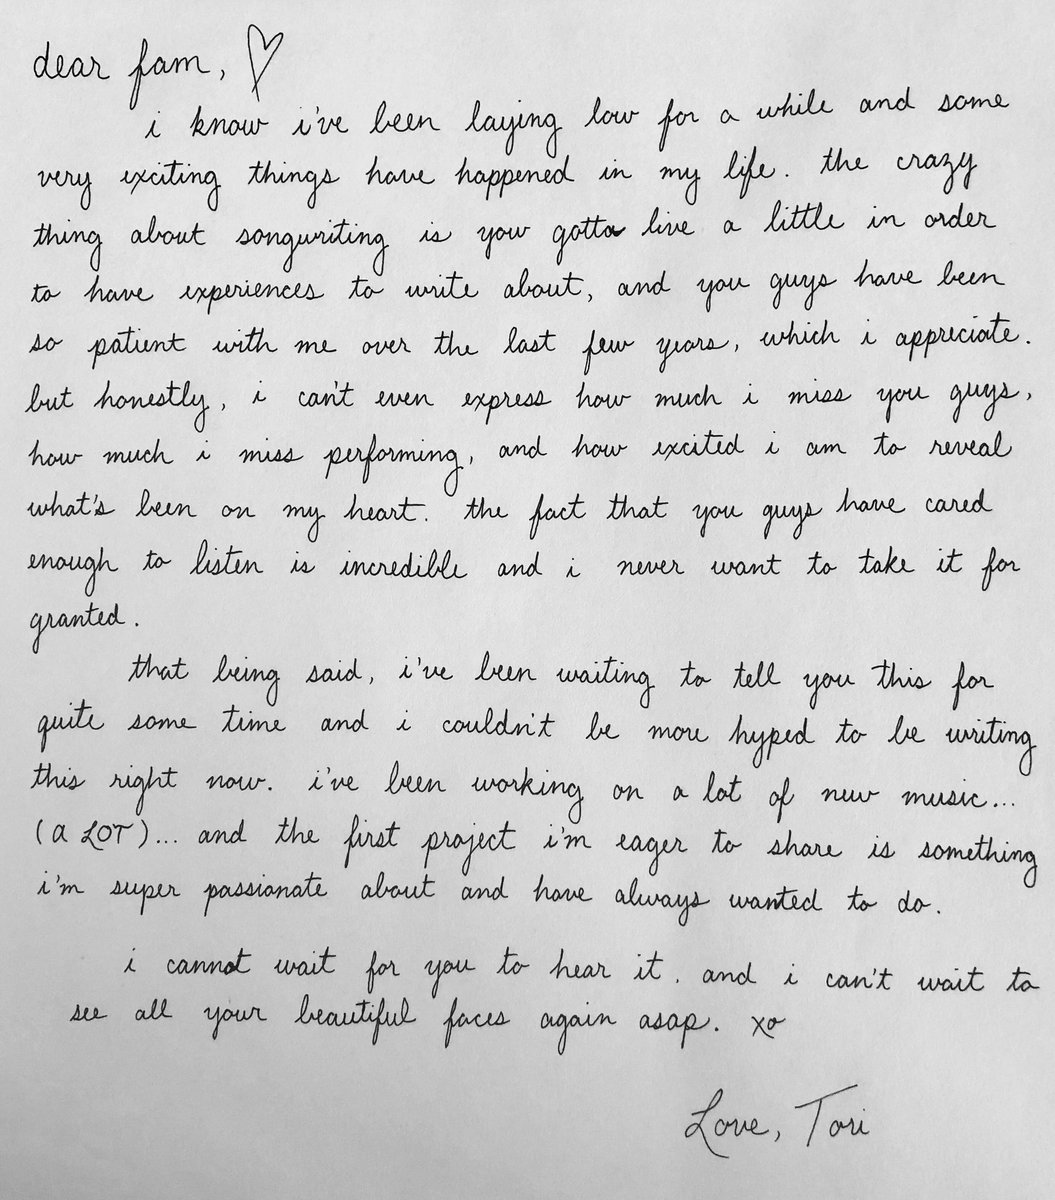 dear fam, ♡
i know i've been laying low for a while and some
very exciting things have happened in my life. the crazy
thing about songwriting is you gotta live a little in order
to have experiences to write about, and you guys have been
so patient with me over the last few years, which i appreciate.
but honestly, i can't even express how much i miss you guys,
how much i miss performing, and how excited i am to reveal
what's been on my heart. the fact that you guys have cared
enough to listen is incredible and i never want to take it for
granted.
that being said, i've been waiting to tell you this for
quite some time and i couldn't be more hyped to be writing
this right now. i've been working on a lot of new music...
(a LOT)... and the first project i'm eager to share is something
i'm super passionate about and have always wanted to do.
i cannot wait for you to hear it. and i can't wait to
see all your beautiful faces again asap. xo
Love, Tori